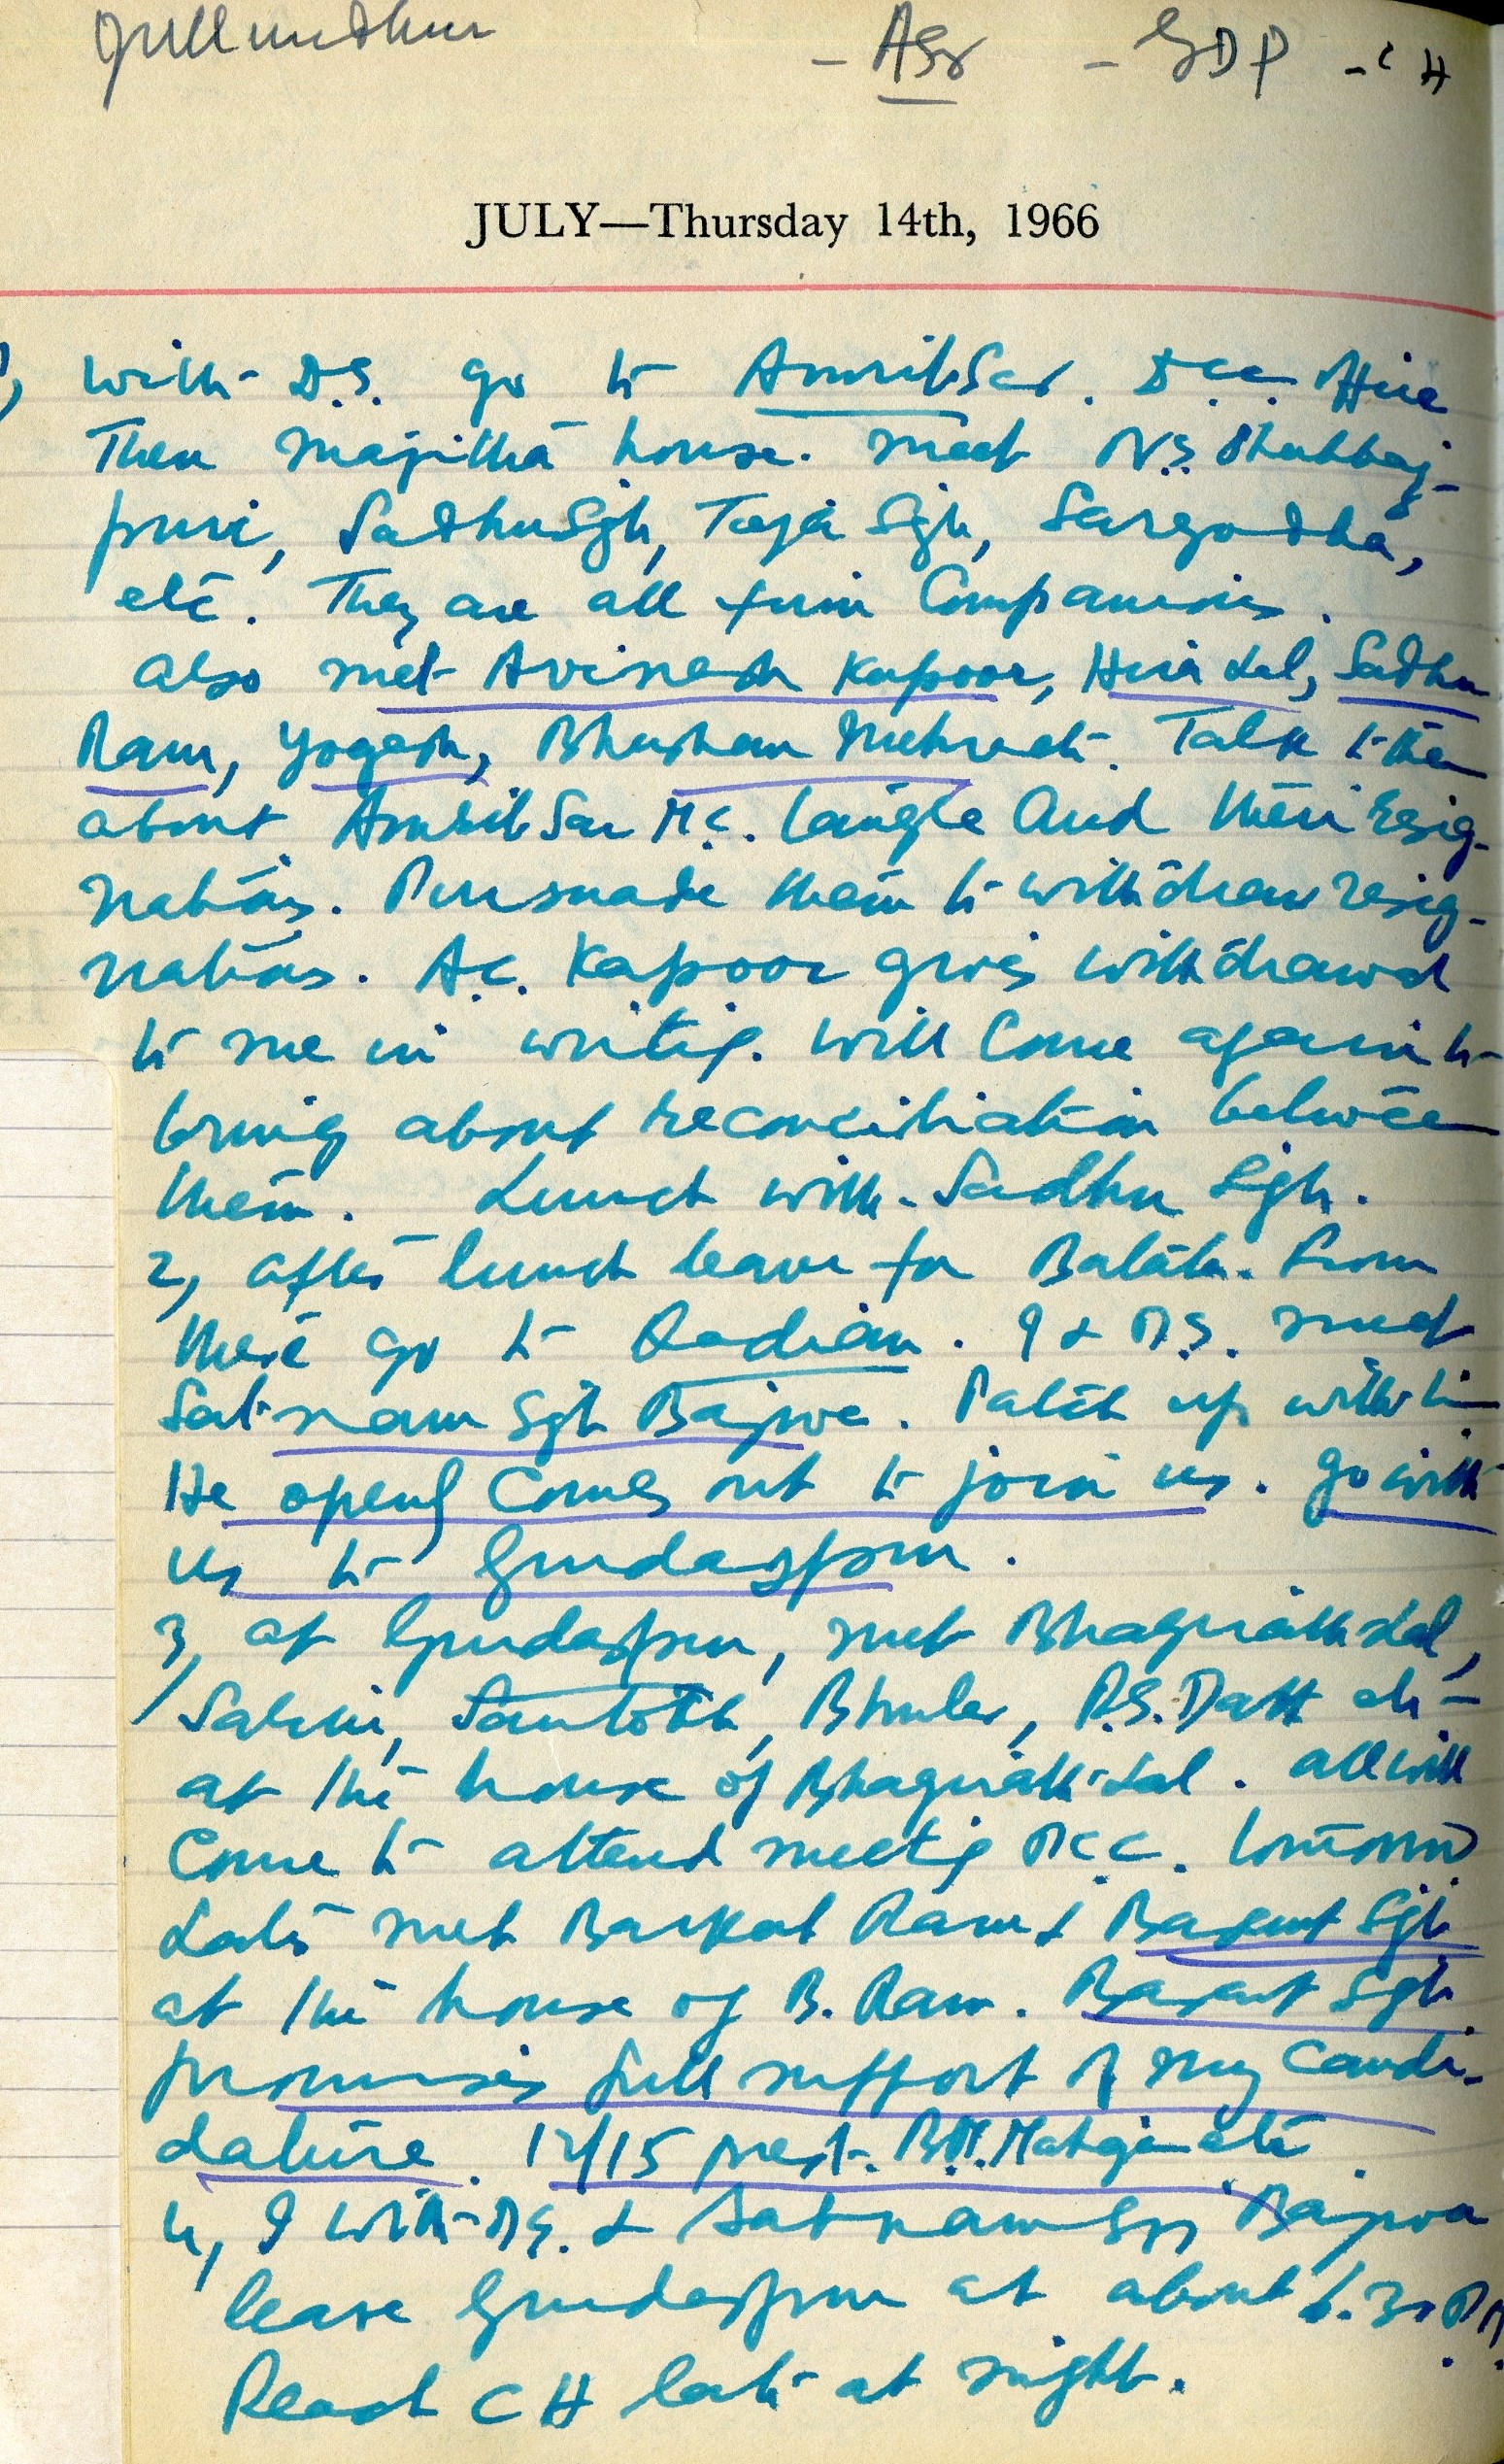 Jullundhur - ASR - GDP - CH
JULY—Thursday 14th, 1966
1, With D.S. go to Amritsar. D.C.C. office
Then Majithia house. Meet N.S.
puri, Sadhu Sgh, Teja Sgh, Sargodha,
etc. They are all firm Companions.
Also met Avinash Kapoor, Hira Lal, Sadhu
Ram, Yogesh, Bhushan Mehra etc. Talk to them
about Amritsar M.C. tangle and their resig-
nations. Persuade them to withdraw resig-
nations. A.C. Kapoor gives withdrawal
to me in writing. Will Come again to
bring about reconciliation between
them. Lunch with Sadhu Sgh.
2, After lunch leave for Batala. From
there go to Qadian. I & D.S. meet
Satnam Sgh Bajwa. Patch up with him
He openly Comes out to join us. Go with
us to Gurdaspur.
3, At Gurdaspur, met Bhagirath Lal,
Saini, Santokh, P.S. Datt etc
at the house of Bhagirath Lal. All will
Come to attend meeting P.C.C. tomorrow
Late met Barkat Ram & Basant Sgh
at the house of B. Ram. Basant Sgh
promises full support of my Candi-
dature. 12/15 prest. etc
4, I with D.S. & Satnam Sgh Bajwa
leave Gurdaspur at about 6.30 PM
Reach CH late at night.